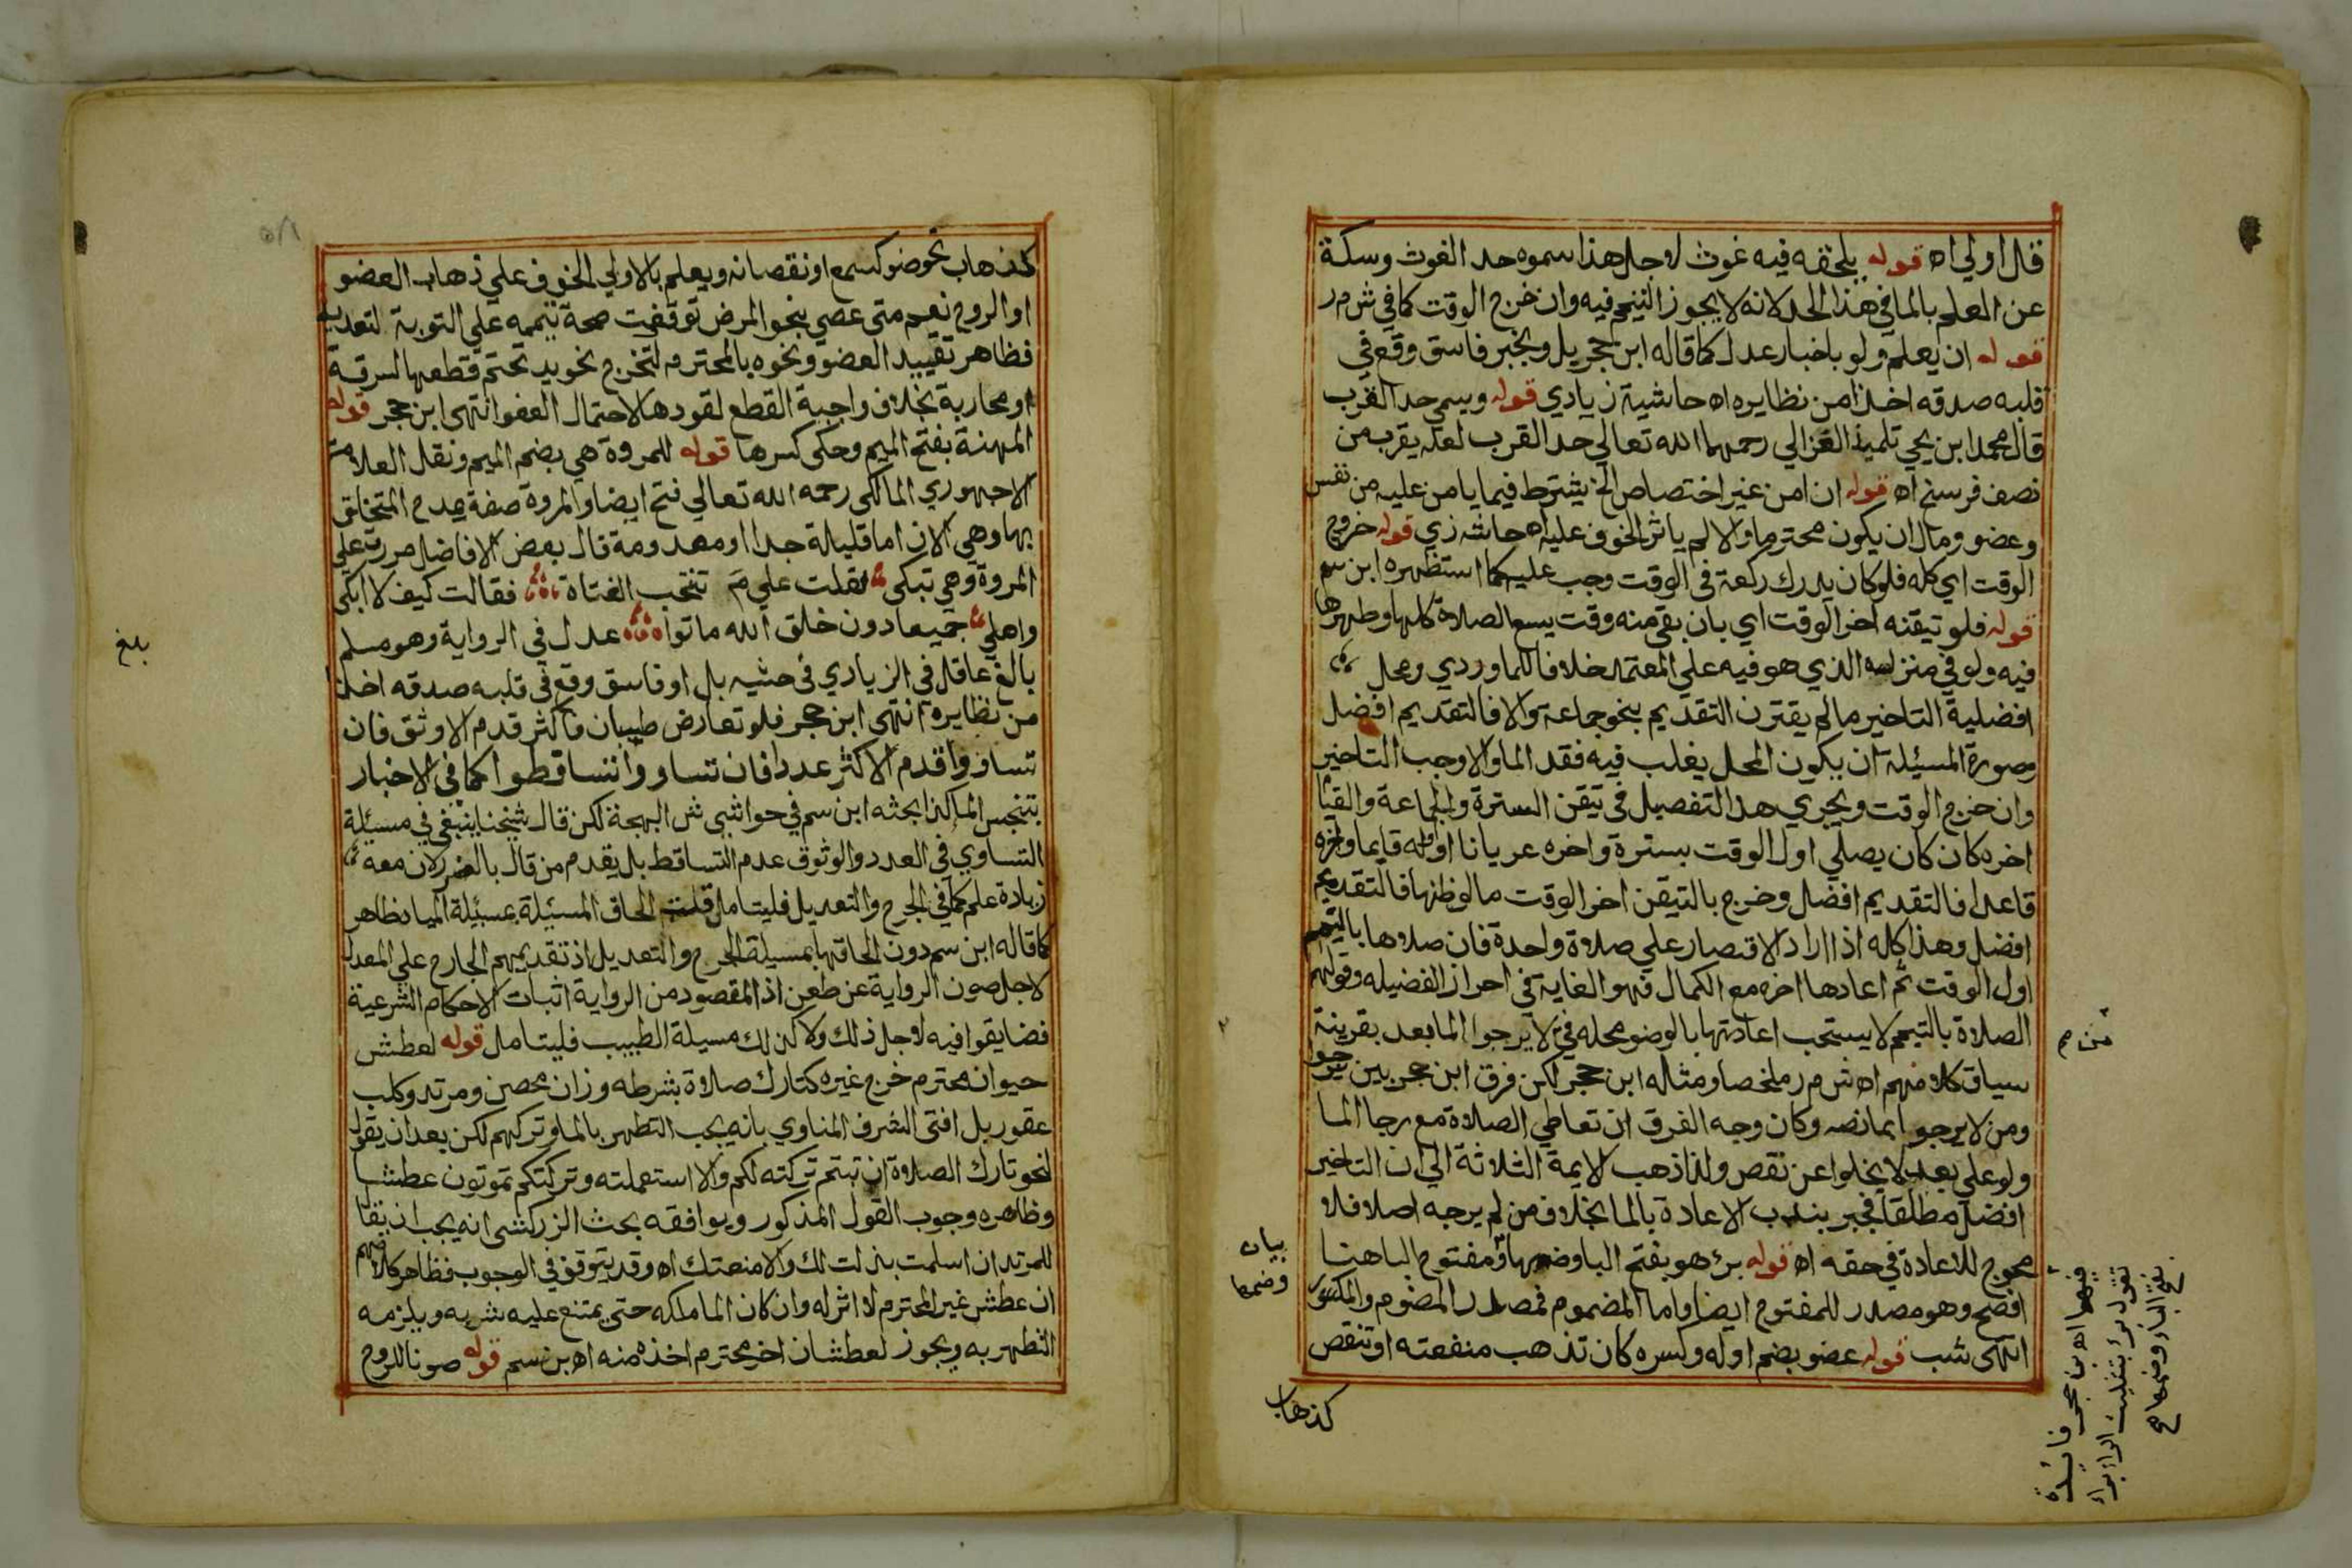 قال اولي اه قوله يلحقه فيه غوث لاجل هذا سموه حد الغوث وسكة
عن العلم بالما في هذا الحد لانه لا يجوز التيمم فيه وان خرج الوقت كما في ش م ر
قوله ان يعلم ولو باخبار عدل كما قاله ابن حجر بل وبخبر فاسق وقع في
قلبه صدقه اخذا من نظايره اه حاشية زيادي قوله ويسمي حد القرب
قال محمد ابن يحي تلميذ الغزالي رحمهما الله تعالي حد القرب لعله يقرب من
نصف فرسخ اه قوله ان امن غير اختصاص الخ يشترط فيما يامن عليه من نفس
وعضو ومال ان يكون محترما والا لم ياثر الخوف عليه اه حاشه زي قوله خروج
الوقت اي كله فلو كان يدرك ركعة في الوقت وجب عليه كما استظهره ابن سم
قوله فلو تيقنه اخر الوقت اي بان بقي منه وقت يسع الصلاة كلها وطهرها
فيه ولو في منزله الذي هو فيه علي المعتمد خلافا للماوردي ومحل
افضلية التاخير ما لم يقترن التقديم بنحو جماعة والا فالتقديم افضل
وصورة المسئلة ان يكون المحل يغلب فيه فقد الما والا وجب التاخير
وان خرج الوقت ويجري هذا التفصيل في تيقن السترة والجماعة والقيام
اخره كان كان يصلي اول الوقت بسترة واخره عريانا او اوله قايما واخره
قاعدا فالتقديم افضل وخرج بالتيقن اخر الوقت ما لو ظنها فالتقديم
افضل وهذا كله اذا اراد الاقتصار علي صلاة واحدة فان صلاها بالتيمم
اول الوقت ثم اعادها اخره مع الكمال فهو الغاية في احراز الفضيله وقولهم
الصلاة بالتيمم لا يستحب اعادتها بالوضو محله فيمن لا يرجوا الما بعد بقرينة
سياق كلامهم اه ش م ر ملخصا ومثاله ابن حجر لكن فرق ابن حجر بين من يرجوا
ومن لا يرجو بما نصه وكان وجه الفرق ان تعاطي الصلاة مع رجا الما
ولو علي بعد لا يخلوا عن نقص ولذا ذهب الايمة الثلاثة الي ان التاخير
افضل مطلقا فجبر بندب الاعادة بالما بخلاف من لم يرجه اصلا فلا
محوج للاعادة في حقه اه قوله برء هو بفتح الباء وضمها ومفتوح الباهنا
افصح وهو مصدر للمفتوح ايضا واما المضموم فمصدر المضموم والمكسور
انتهى شب قوله عضو بضم اوله وكسره كان تذهب منفعته او تنقص
كذهاب
من م
بيان
وضمها
فيهما اه بن حجر فائدة
تقول برء بتثليث الراء برء
بفتح الباء وضمها اه
كذهاب نحو ضو كسمع او نقصانه ويعلم بالاولي الخوف علي ذهاب العضو
او الروح نعم متى عصي بنحو المرض توقفت صحة تيممه علي التوبة لتعديه
فظاهر تقييد العضو ونحوه بالمحترم لتخرج نحو يد تحتم قطعها لسرقة
او محاربة بخلاف واجبة القطع لقود ها لاحتمال العفو انتهى ابن حجر قوله
المهنة بفتح الميم وحكى كسرها قوله للمروة هي بضم الميم ونقل العلامة
الاجهوري المالكي رحمه الله تعالي فتح ايضا والمروة صفة يمدح المتخلق
بها وهي الان اما قليلة جدا او معدومة قال بعض الافاضل مررت علي
المروة وهي تبكي فقلت علي م تنتحب الفتاة فقالت كيف لا ابكي
واهلي جميعا دون خلق الله ماتوا عدل في الرواية وهو مسلم
بالغ عاقل في الزيادي في حشيه بل او فاسق وقع في قلبه صدقه اخذا
من نظايره انتهى ابن حجر فلو تعارض طبيبان فاكثر قدم الاوثق فان
تساووا قدم الاكثر عددا فان تساووا تساقطوا كما في الاخبار
بتنجس الما كذا بحثه ابن سم في حواشي ش البهجة لكن قال شيخنا ينبغي في مسئلة
التساوي في العدد والوثوق عدم التساقط بل يقدم من قال بالضرر لان معه
زيادة علم كما في الجرح والتعديل فليتامل قلت الحاق المسئلة بمسئلة المياه ظاهر
كما قاله ابن سم دون الحاقها بمسيلة الجرح والتعديل اذ تقديمهم الجارح علي المعدل
لاجل صون الرواية عن طعن اذ المقصود من الرواية اثبات الاحكام الشرعية
فضايقوا فيه لاجل ذلك ولا كذلك مسيلة الطبيب فليتامل قوله لعطش
حيوان محترم خرج غيره كتارك صلاة بشرطه وزان محصن ومرتد وكلب
عقور بل افتى الشرف المناوي بانه يجب التطهر بالما وتركهم لكن بعد ان يقول
لنحو تارك الصلاة ان تبتم تركته لكم والا استعملته وتركتكم تموتون عطشا
وظاهره وجوب القول المذكور ويوافقه بحث الزركشي انه يجب ان يقال
للمرتد ان اسلمت بذلت لك والا منعتك اه وقد يتوقف في الوجوب فظاهر كلامهم
ان عطش غير المحترم لا اثر له وان كان الما ملكه حتى يمتنع عليه شربه ويلزمه
التطهر به ويجوز لعطشان اخر محترم اخذه منه اه بن سم قوله صونا للروح
بلغ